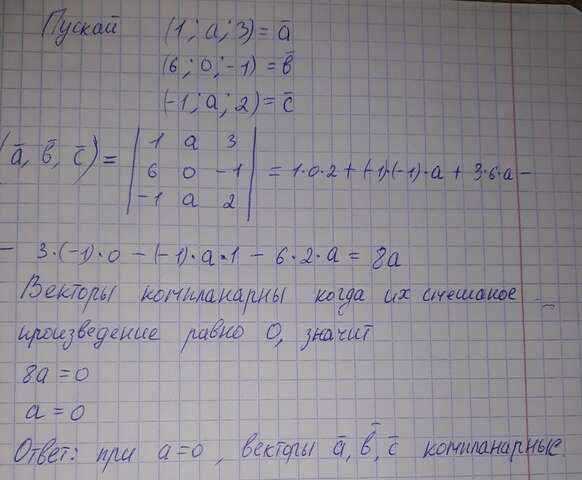 Пускай (1; a; 3) = a̅
(6; 0; -1) = b̅
(-1; a; 2) = c̅
(a̅, b̅, c̅) = | 1 a 3 | = 1·0·2 + (-1)·(-1)·a + 3·6·a -
| 6 0 -1 |
| -1 a 2 |
- 3·(-1)·0 - (-1)·a·1 - 6·2·a = 8a
Векторы компланарны когда их смешаное
произведение равно 0, значит
8a = 0
a = 0
Ответ: при a=0, векторы a̅, b̅, c̅ компланарные.